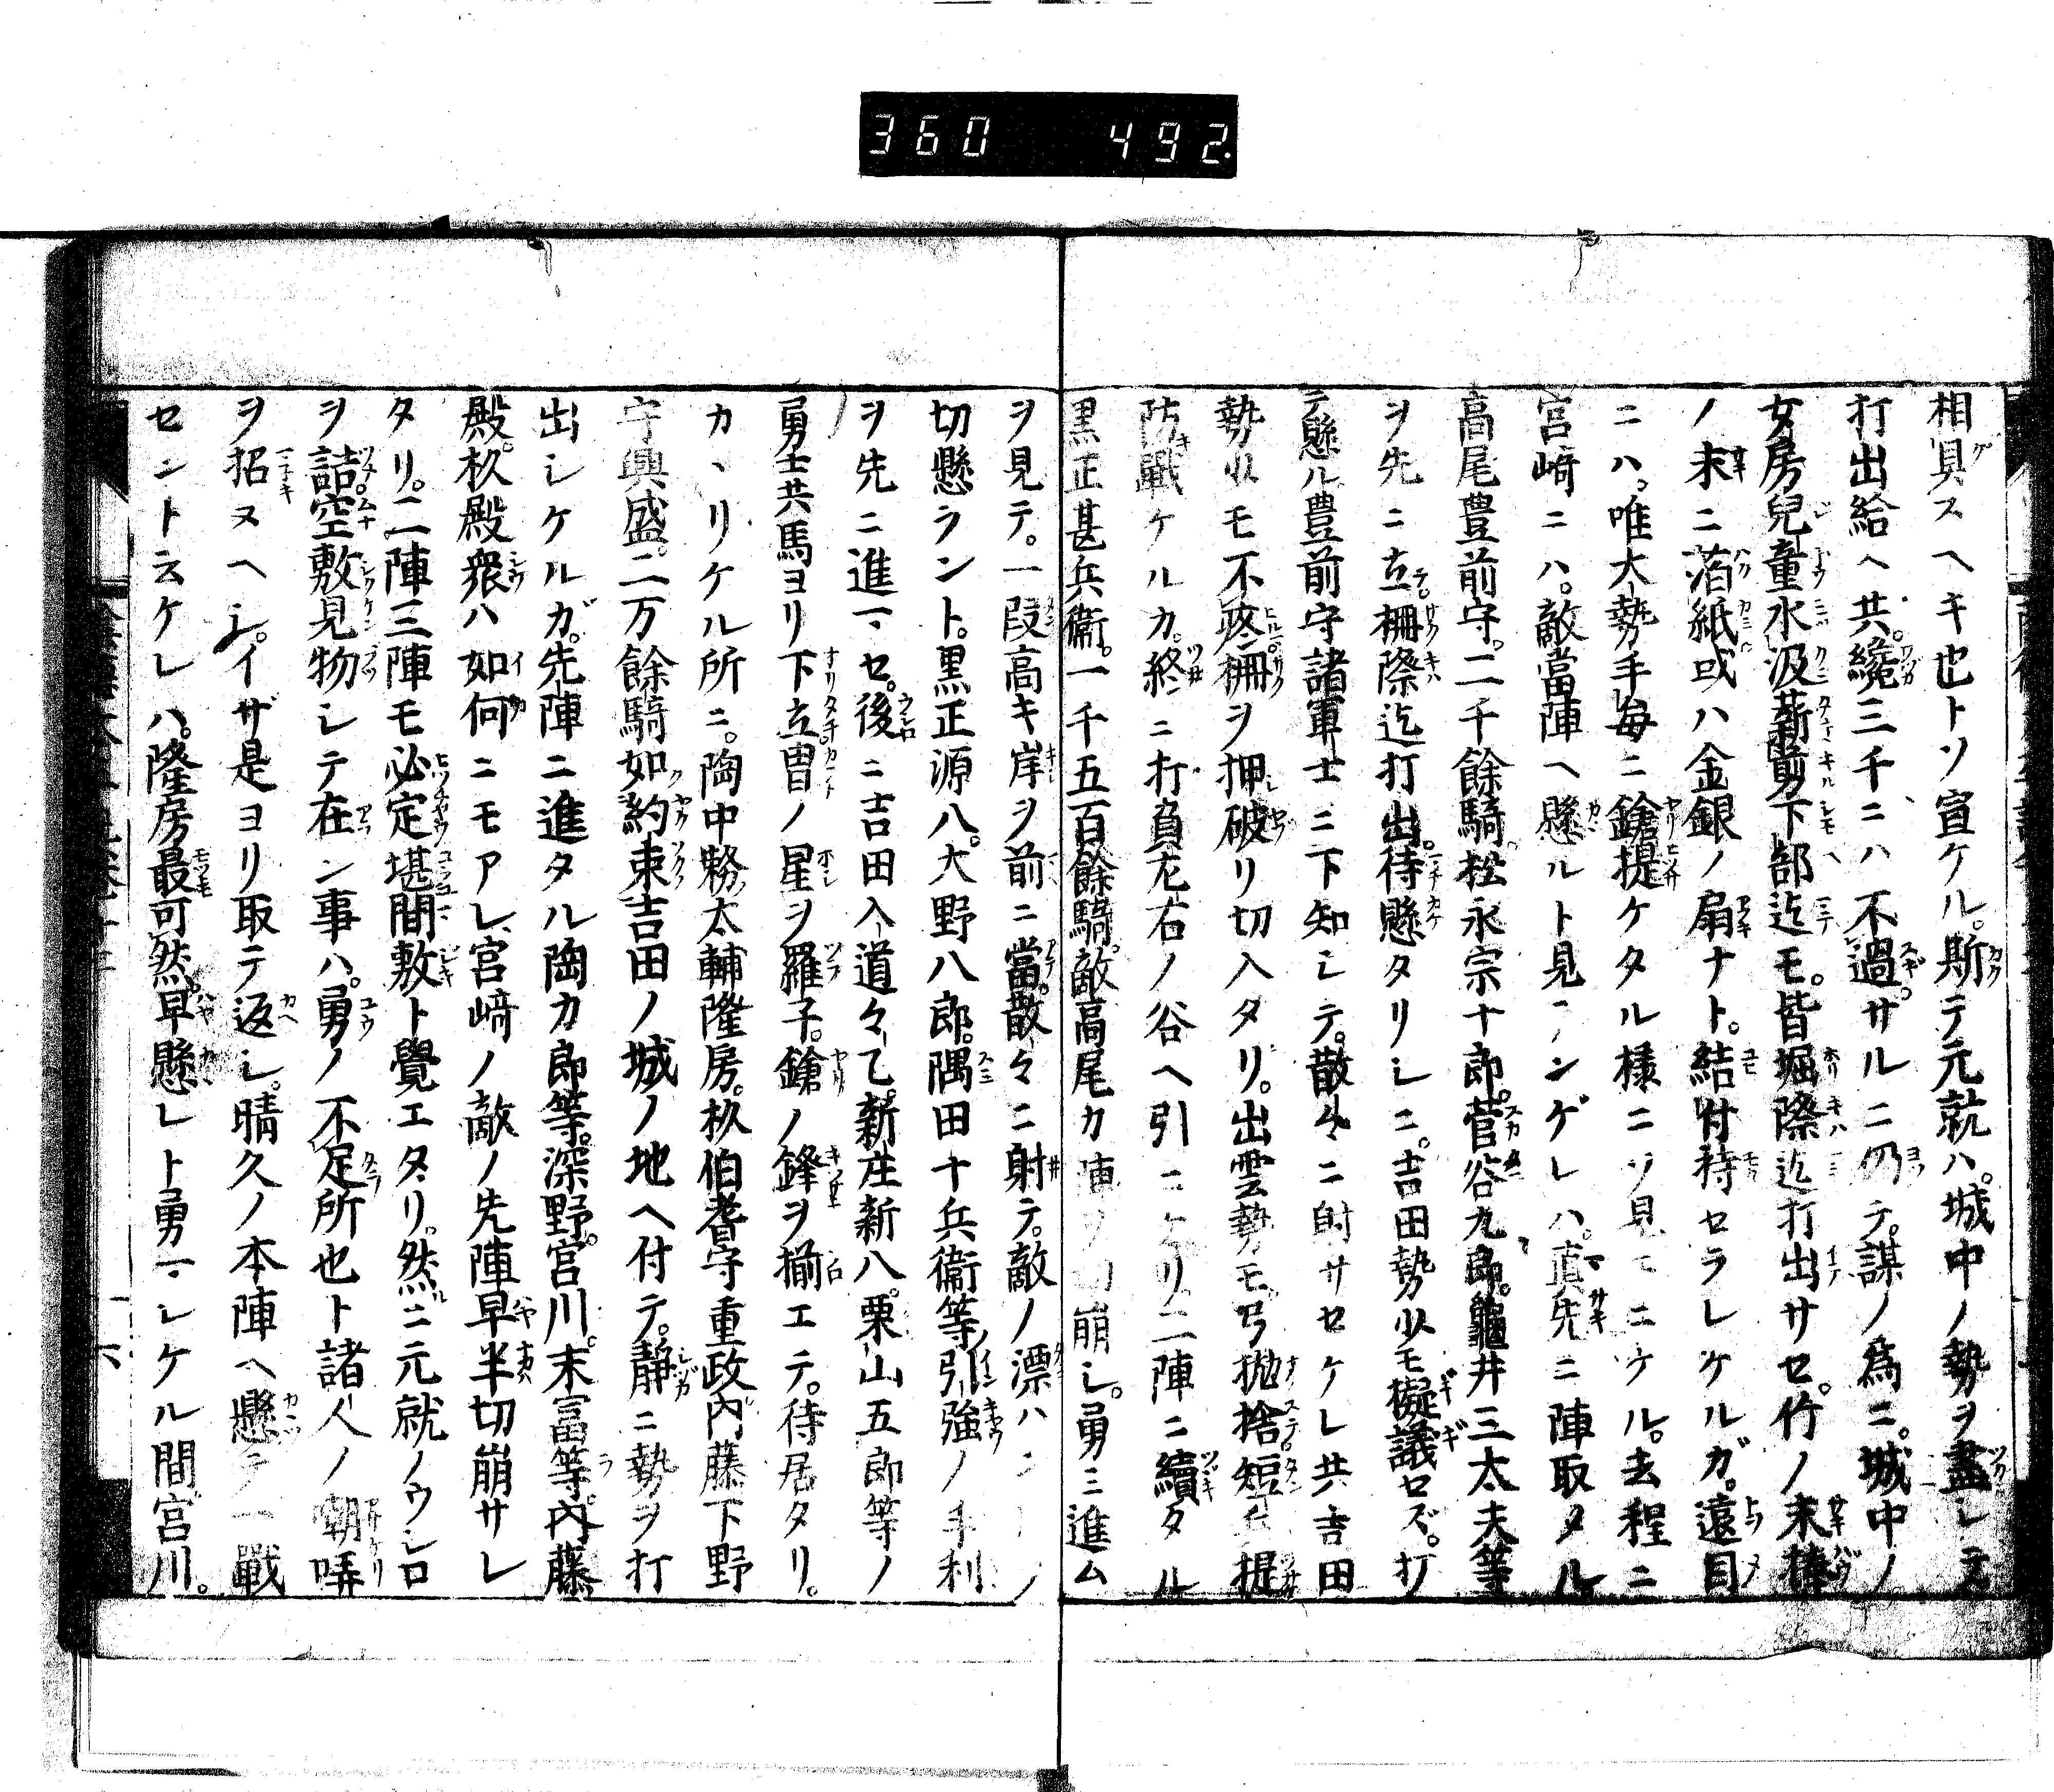 360 492.
相具スヘキ也トソ宣ケル。斯テ元就ハ。城中ノ勢ヲ盡シテ
打出給ヘ共。纔三千ニハ不過サルニ仍テ。謀ノ爲ニ。城中ノ
女房兒童水汲薪剪下部迄モ。皆堀際迄打出サセ。竹ノ末棒
ノ末ニ箔紙或ハ金銀ノ扇ナト。結付持セラレケルガ。遠目
ニハ。唯大勢手毎ニ鎗提ケタル様ニソ見エニケル。去程ニ
宮﨑ニハ。敵當陣ヘ懸ルト見ヘンゲレハ。真先ニ陣取タル
高尾豊前守。二千餘騎。松永宗十郎。菅谷九郎。龜井三太夫等
ヲ先ニ立柵際迄打出。待懸タリシニ。吉田勢少モ擬議セズ。打
テ懸ル豊前守諸軍士ニ下知シテ。散々ニ射サセケレ共吉田
勢少モ不疼柵ヲ押破リ切入タリ。出雲勢モ弓抛捨短兵提
防戰ケルカ。終ニ打負左右ノ谷ヘ引ニケリ。二陣ニ續タル
黒正甚兵衞。一千五百餘騎。敵高尾カ陣ヲ切崩シ。勇ミ進ム
ヲ見テ。一段高キ岸ヲ前ニ當。散々ニ射テ。敵ノ漂ハン
切懸ラント。黒正源八。大野八郎。隅田十兵衞等引強ノ手利
ヲ先ニ進マセ。後ニ吉田入道々乇。新庄新八。栗山五郎等ノ
勇士共馬ヨリ下立冑ノ星ヲ羅子。鎗ノ鋒ヲ揃エテ。待居タリ。
カヽリケル所ニ。陶中務太輔隆房。杦伯耆守重政内藤下野
守興盛。二万餘騎如約束吉田ノ城ノ地ヘ付テ。靜ニ勢ヲ打
出シケルガ。先陣ニ進タル陶カ郎等。深野。宮川。末冨等。内藤
殿。杦殿衆ハ如何ニモアレ、宮﨑ノ敵ノ先陣早半切崩サレ
タリ。二陣三陣モ必定堪間敷ト覺エタリ。然ニ元就ノウシロ
ヲ詰空敷見物シテ在ン事ハ。勇ノ不足所也ト諸人ノ嘲哢
ヲ招ヌヘシ。イザ是ヨリ取テ返シ。晴久ノ本陣ヘ懸テ一戰
セント云ケレハ。隆房最可然。早懸レト勇マレケル間宮川。